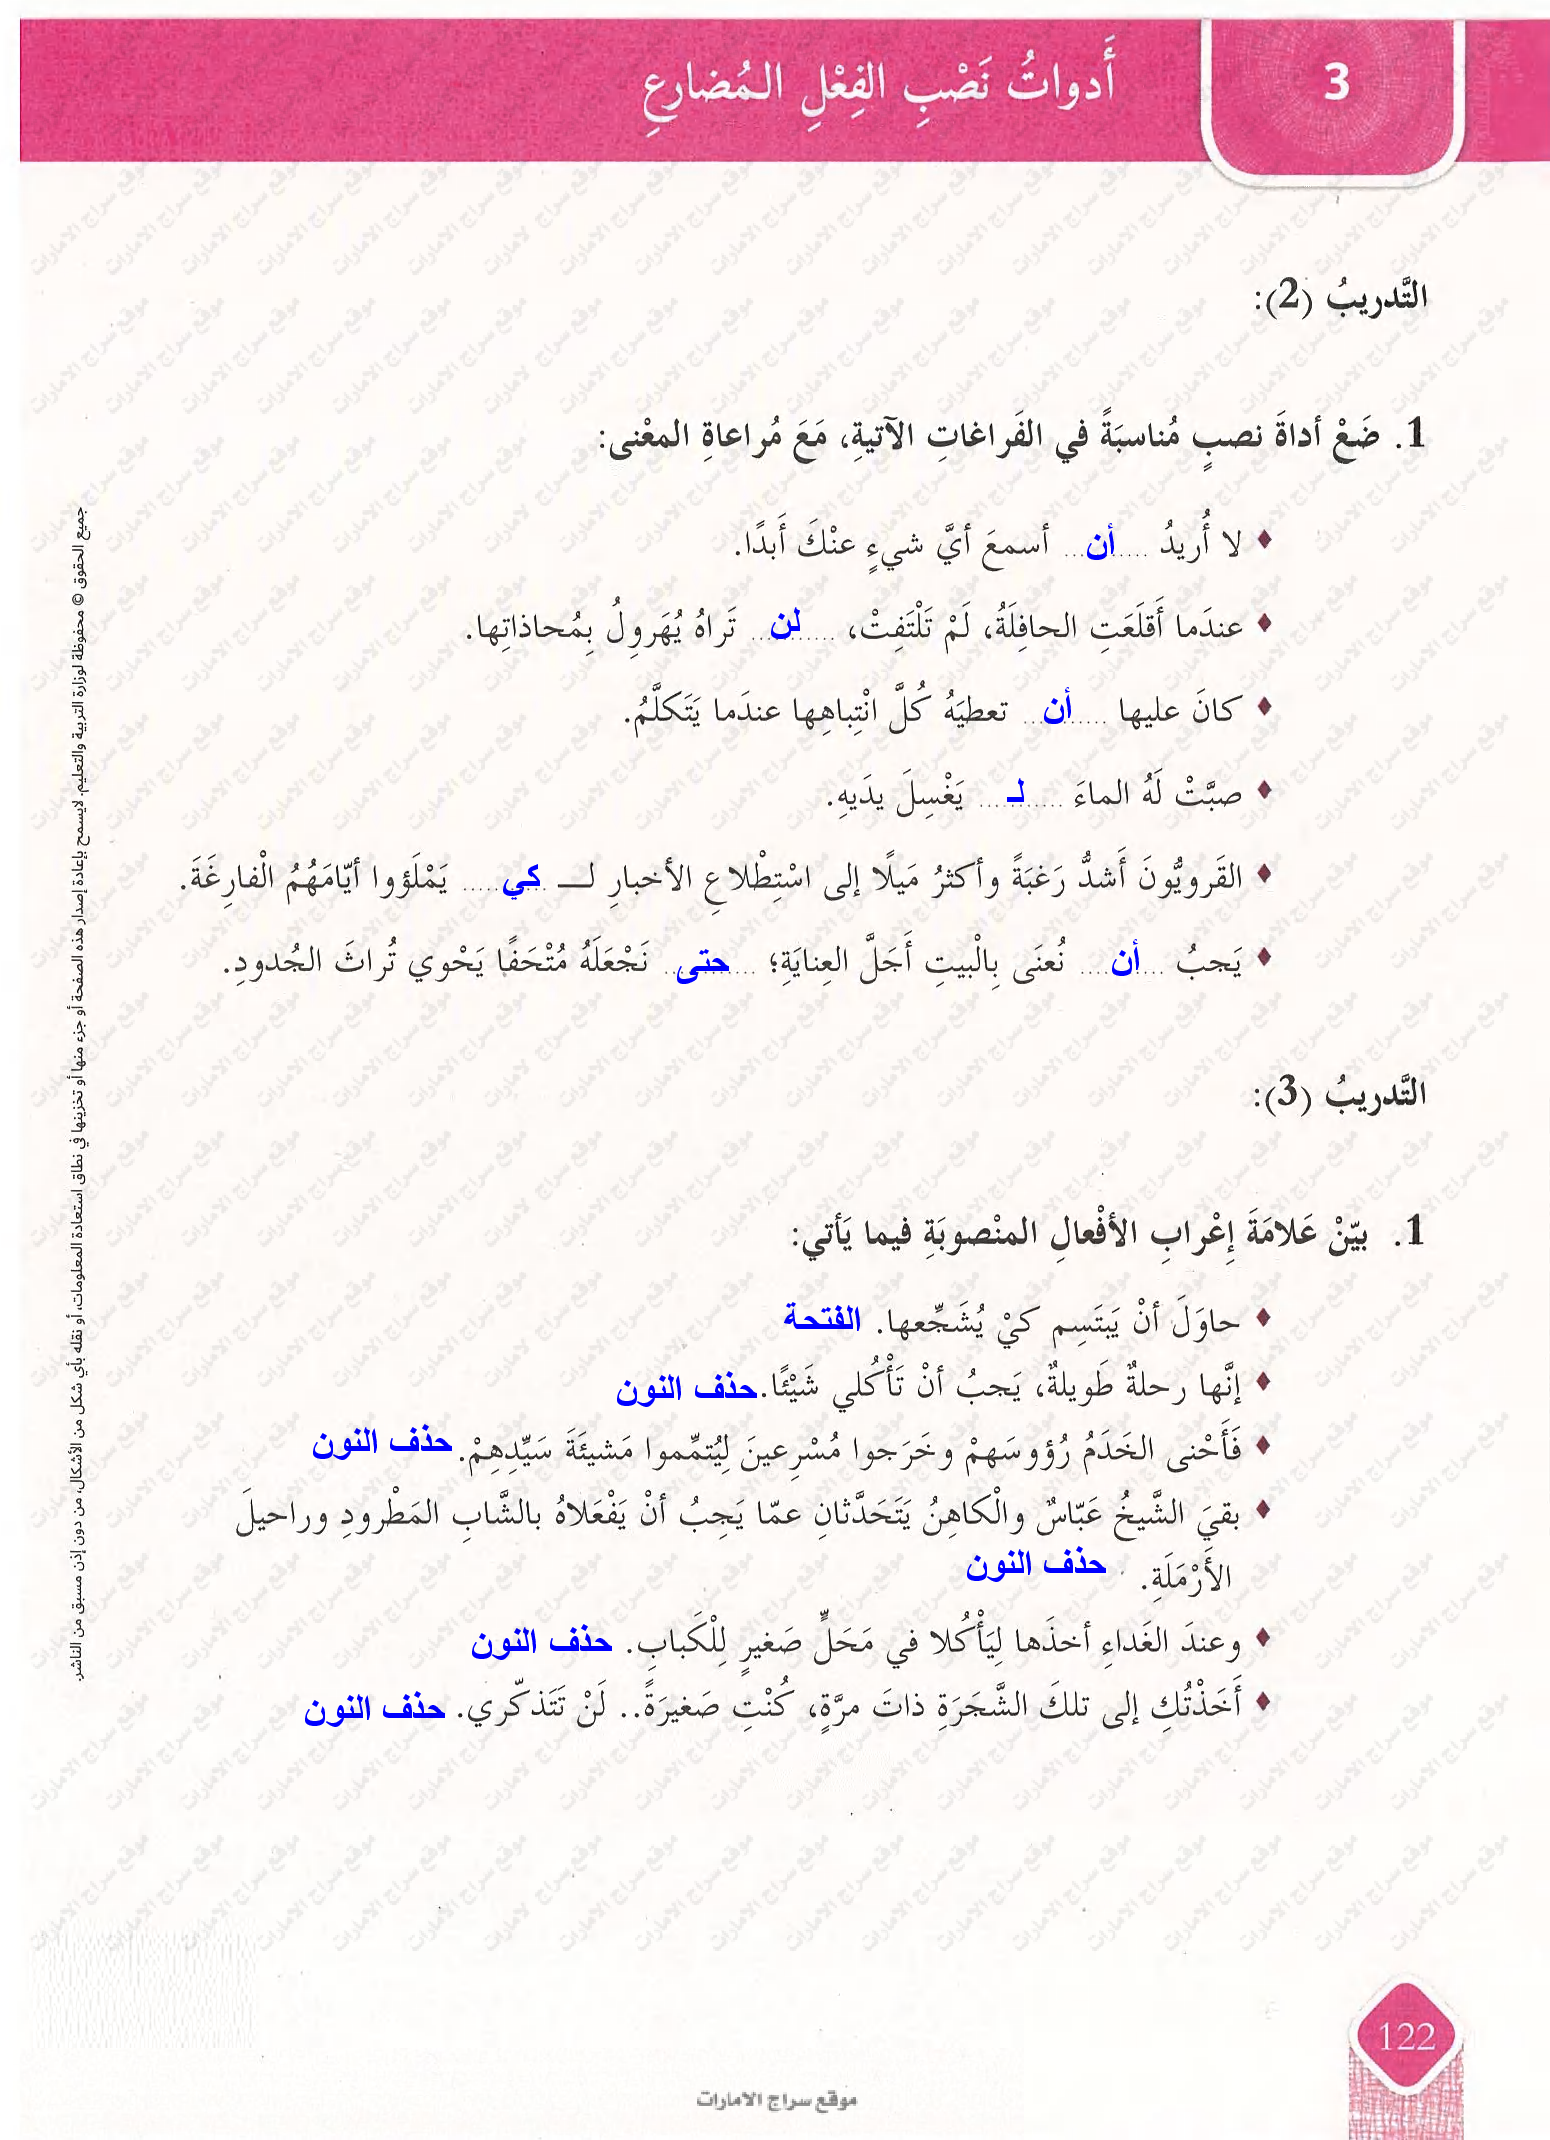 3
أَدواتُ نَصْبِ الفِعْلِ المُضارعِ
التَّدريبُ (2):
1. ضَعْ أداةَ نصبٍ مُناسبَةً في الفَراغاتِ الآتيةِ، مَعَ مُراعاةِ المعْنى:
♦ لا أُريدُ .....أن... أسمعَ أيَّ شيءٍ عنْكَ أَبدًا.
♦ عندَما أَقلَعَتِ الحافِلَةُ، لَمْ تَلْتَفِتْ، ......لن... تَراهُ يُهَرولُ بِمُحاذاتِها.
♦ كانَ عليها ......أن... تعطيَهُ كُلَّ انْتِباهِها عندَما يَتَكلَّمُ.
♦ صبَّتْ لَهُ الماءَ ......لـ...... يَغْسِلَ يدَيهِ.
♦ القَرويُّونَ أَشدُّ رَغبَةً وأكثرُ مَيلًا إلى اسْتِطْلاعِ الأخبارِ لـــ ...كي..... يَمْلَؤوا أيّامَهُمُ الْفارِغَةَ.
♦ يَجبُ ...أن.... نُعنَى بِالْبيتِ أَجَلَّ العِنايَةِ؛ ...حتى... نَجْعَلَهُ مُتْحَفًا يَحْوي تُراثَ الجُدودِ.
التَّدريبُ (3):
1. بيّنْ عَلامَةَ إِعْرابِ الأفْعالِ المنْصوبَةِ فيما يَأتي:
♦ حاوَلَ أنْ يَبتَسِم كيْ يُشَجِّعها. الفتحة
♦ إنَّها رحلةٌ طَويلةٌ، يَجبُ أنْ تَأْكُلي شَيْئًا. حذف النون
♦ فَأَحْنى الخَدَمُ رُؤوسَهمْ وخَرَجوا مُسْرِعينَ لِيُتمِّموا مَشيئَةَ سَيِّدِهِمْ. حذف النون
♦ بقيَ الشَّيخُ عَبّاسٌ والْكاهِنُ يَتَحَدَّثانِ عمّا يَجِبُ أنْ يَفْعَلاهُ بالشَّابِ المَطْرودِ وراحيلَ
الأَرْمَلَةِ. حذف النون
♦ وعندَ الغَداءِ أخذَها لِيَأْكُلا في مَحَلٍّ صَغيرٍ لِلْكَبابِ. حذف النون
♦ أَخَذْتُكِ إلى تلكَ الشَّجَرَةِ ذاتَ مرَّةٍ، كُنْتِ صَغيرَةً.. لَنْ تَتَذكّري. حذف النون
جميع الحقوق © محفوظة لوزارة التربية والتعليم. لايسمح بإعادة إصدار هذه الصفحة أو جزء منها أو تخزينها في نطاق استعادة المعلومات، أو نقله بأي شكل من الأشكال، من دون إذن مسبق من الناشر.
122
موقع سراج الامارات